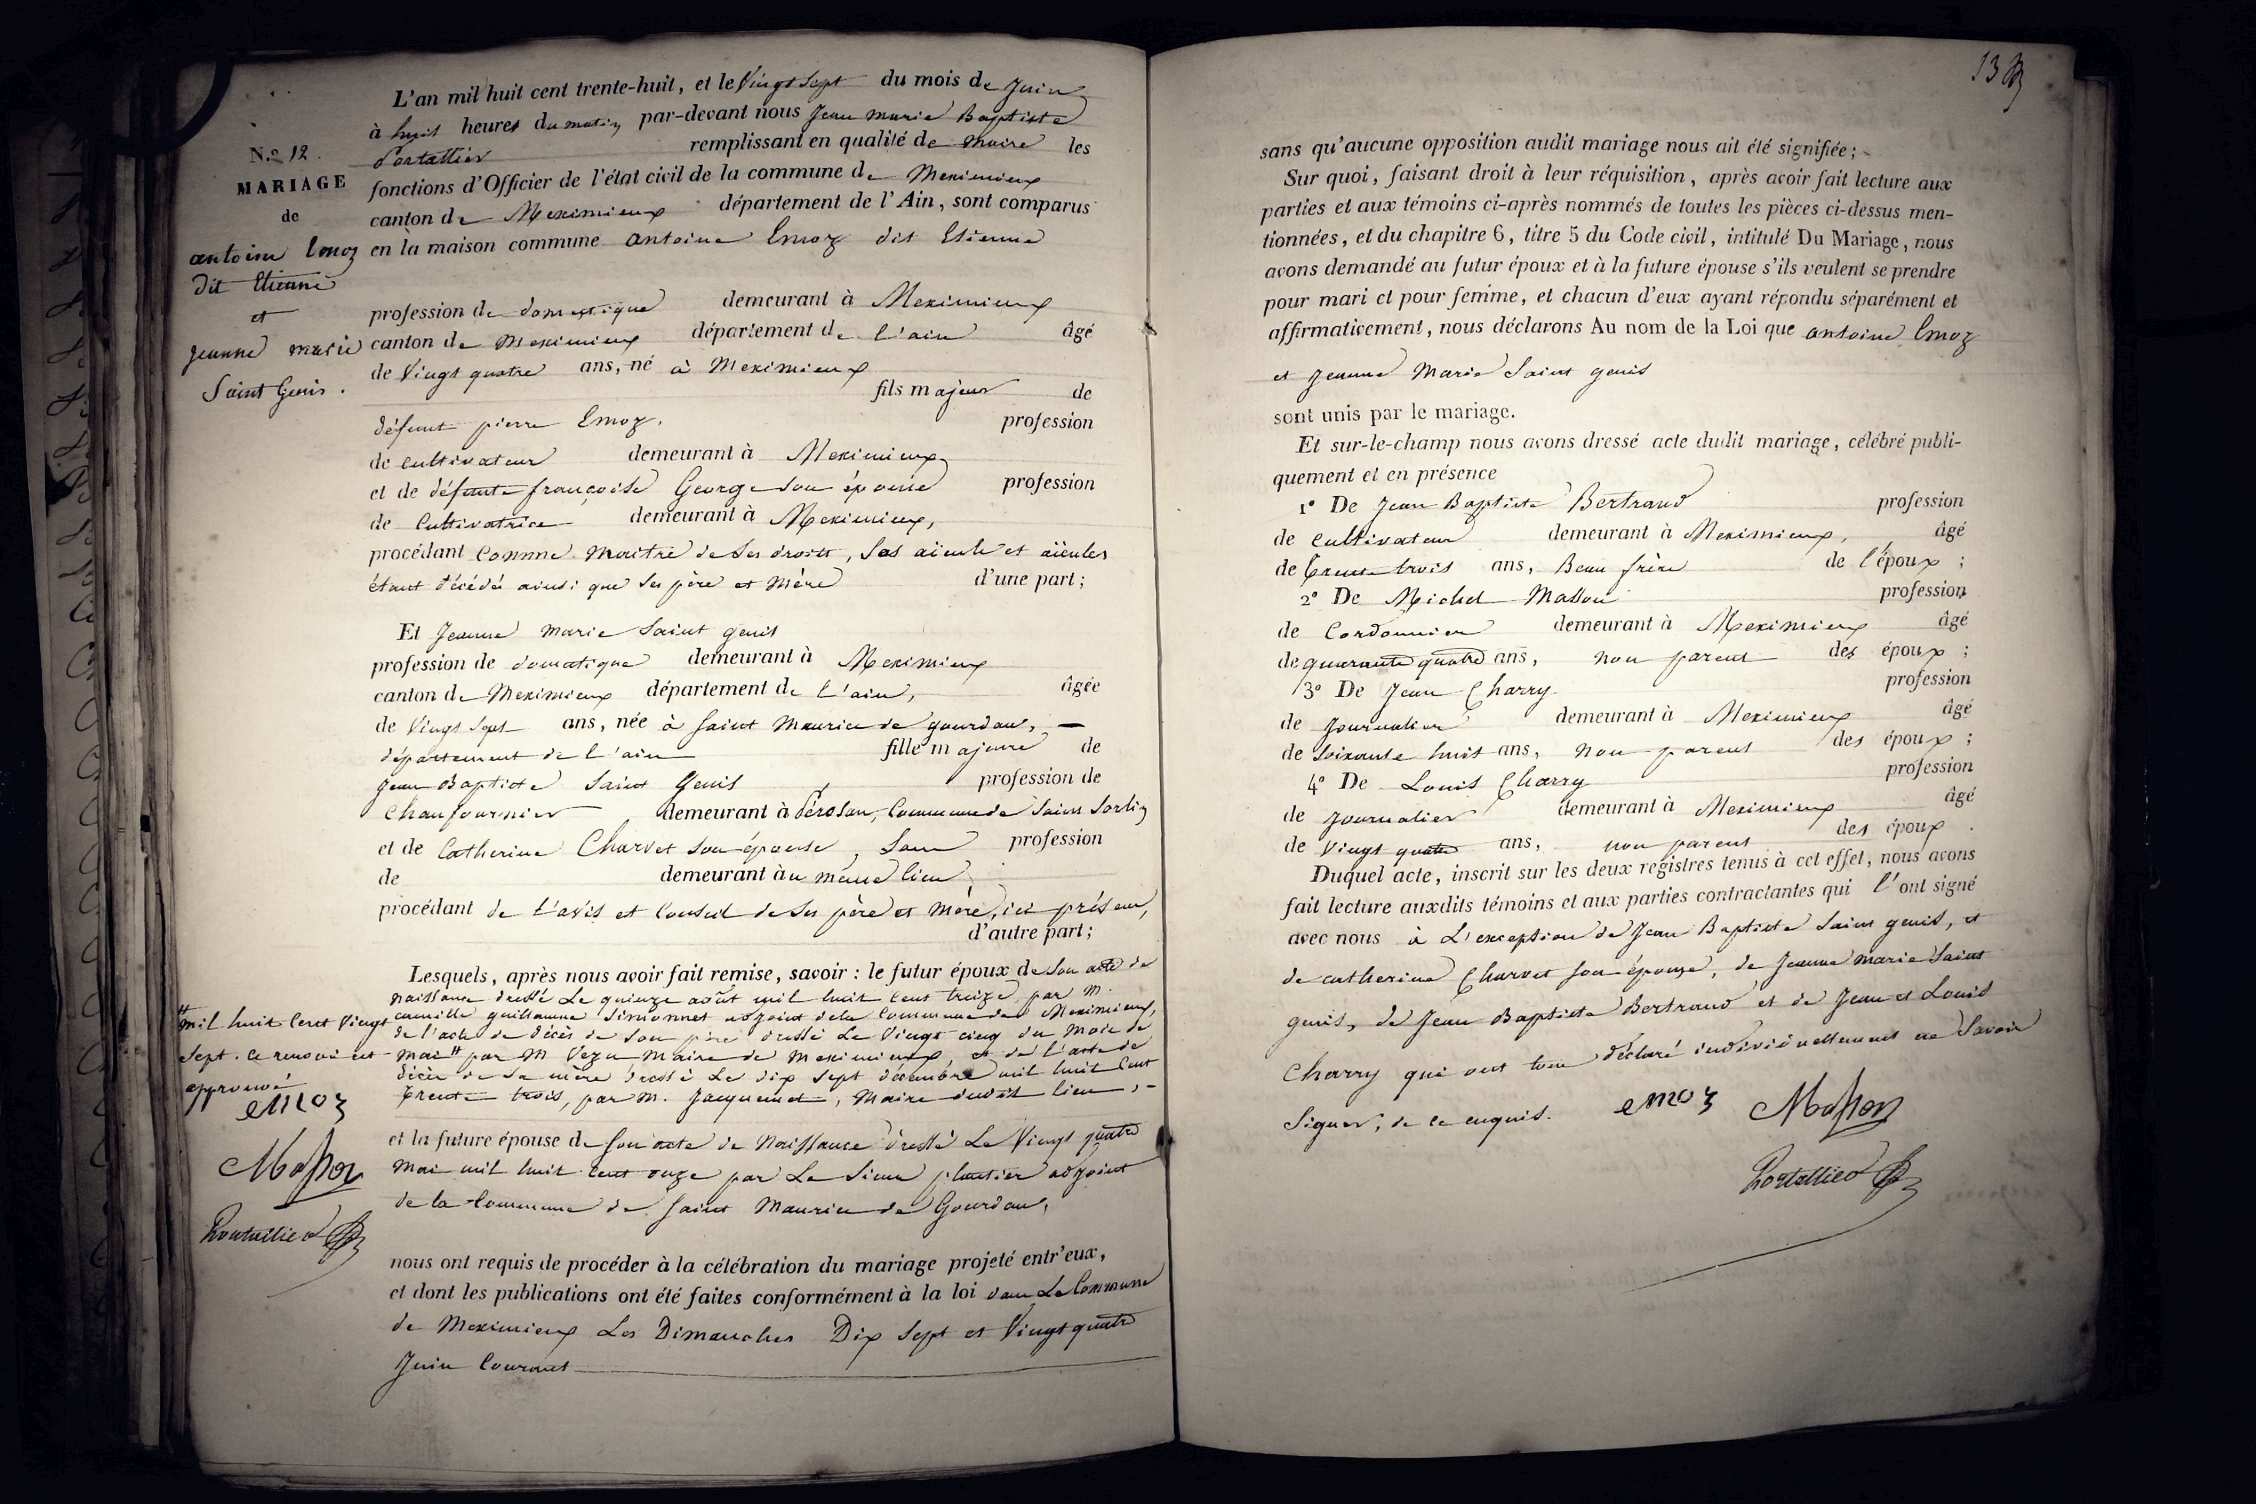 N.º 12.
MARIAGE
de
antoine Emoz
dit Etienne
et
jeanne marie
Saint Genis.
L'an mil huit cent trente-huit, et le Vingt Sept du mois de Juin
à huit heures du matin par-devant nous Jean marie Baptiste
Portallier remplissant en qualité de maire les
fonctions d'Officier de l'état civil de la commune de Meximieux
canton de Meximieux département de l'Ain, sont comparus
en la maison commune antoine Emoz dit Etienne
profession de domestique demeurant à Meximieux
canton de Meximieux département de l'ain âgé
de Vingt quatre ans, né à Meximieux
fils majeur de
défunt pierre Emoz. profession
de cultivateur demeurant à Meximieux
et de défunte françoise George son épouse profession
de Cultivatrice demeurant à Meximieux,
procédant Comme maitre de ses droits, Ses aïeuls et aïeules
étant décédés ainsi que ses père et mère d'une part;
Et Jeanne marie Saint genis
profession de domestique demeurant à Meximieux
canton de Meximieux département de l'ain, âgée
de Vingt Sept ans, née à Saint Maurice de gourdan, —
département de l'ain fille majeure de
Jean Baptiste Saint Genis, profession de
Chaufournier demeurant à Pérosan, Commune de Saint Sorlin
et de Catherine Charvet son épouse, Sans profession
de demeurant àu même lieu,
procédant de l'avis et Conseil de ses père et mère, ici présens,
d'autre part;
Lesquels, après nous avoir fait remise, savoir : le futur époux de Son acte de
naissance dressé Le quinze août mil huit Cent treize par M.
camille guillaume Simonnet adjoint de la Commune de Meximieux,
de l'acte de décès de son père dressé Le Vingt cinq du Mois de
mai # par M Vezu maire de meximieux, et de l'acte de
décès de sa mère dressé Le dix Sept décembre mil huit Cent
trente trois, par M. Jacquemet, Maire dudit lieu, —
# mil huit Cent Vingt
Sept. Ce renvoi est
approuvé
emoz
Masson
Portallier
et la future épouse de Son acte de Naissance dressé Le Vingt quatre
Mai mil huit cent onze par Le Sieur plantier adjoint
de la Commune de Saint Maurice de Gourdan,
nous ont requis de procéder à la célébration du mariage projeté entr'eux,
et dont les publications ont été faites conformément à la loi dans La Commune
de Meximieux Les Dimanches Dix Sept et Vingt quatre
Juin Courant
13
sans qu'aucune opposition audit mariage nous ait été signifiée;
Sur quoi, faisant droit à leur réquisition, après avoir fait lecture aux
parties et aux témoins ci-après nommés de toutes les pièces ci-dessus men-
tionnées, et du chapitre 6, titre 5 du Code civil, intitulé Du Mariage, nous
avons demandé au futur époux et à la future épouse s'ils veulent se prendre
pour mari et pour femme, et chacun d'eux ayant répondu séparément et
affirmativement, nous déclarons Au nom de la Loi que antoine Emoz
et Jeanne Marie Saint genis
sont unis par le mariage.
Et sur-le-champ nous avons dressé acte dudit mariage, célébré publi-
quement et en présence
1º De Jean Baptiste Bertrand profession
de cultivateur demeurant à Meximieux, âgé
de trente trois ans, Beau frère de l'époux;
2º De Michel Masson profession
de Cordonnier demeurant à Meximieux âgé
de quarante quatre ans, non parent des époux;
3º De Jean Charry profession
de Journalier demeurant à Meximieux âgé
de soixante huit ans, non parent des époux;
4º De Louis Charry profession
de Journalier demeurant à Meximieux âgé
de Vingt quatre ans, non parent des époux.
Duquel acte, inscrit sur les deux registres tenus à cet effet, nous avons
fait lecture auxdits témoins et aux parties contractantes qui l'ont signé
avec nous à L'exception de Jean Baptiste Saint genis, et
de catherine Charvet son épouse, de Jeanne marie Saint
genis, de Jean Baptiste Bertrand et de Jean et Louis
Charry qui ont tous déclaré individuellement ne Savoir
Signer, de ce enquis. emoz Masson
Portallier